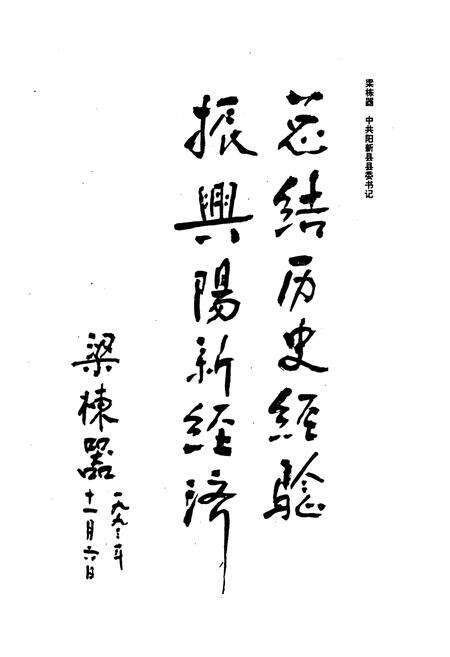 梁栋器 中共阳新县县委书记
总结历史经验
振興陽新经济
梁栋器
一九九二年
十一月六日